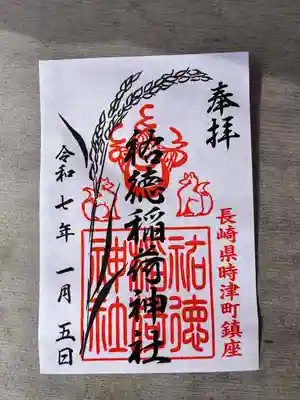 奉拝
長崎県時津町鎮座
祐徳稲荷神社
祐徳
稲荷
神社
令和七年一月五日